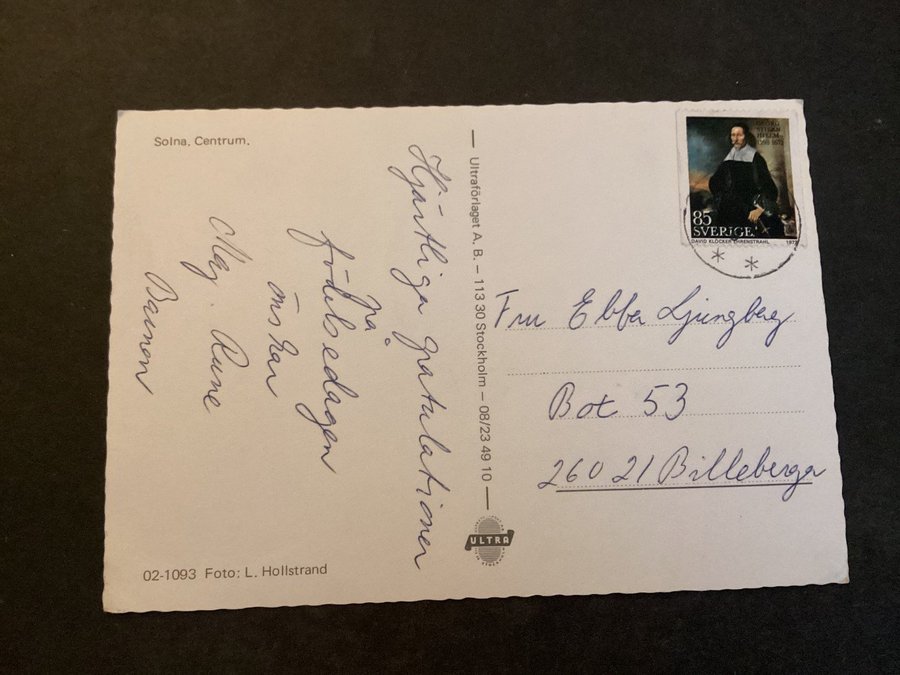 Solna. Centrum.
Hjärtliga gratulationer
på
födelsedagen
önskar
Maj. Rune
Barnen
02-1093 Foto: L. Hollstrand
Ultraförlaget A.B. – 113 30 Stockholm – 08/23 49 10
ULTRA
GEORG
STIERN
HIELM
1598 1672
85
SVERIGE
DAVID KLÖCKER EHRENSTRAHL 1972
Fru Ebba Ljungberg
Box 53
260 21 Billeberga